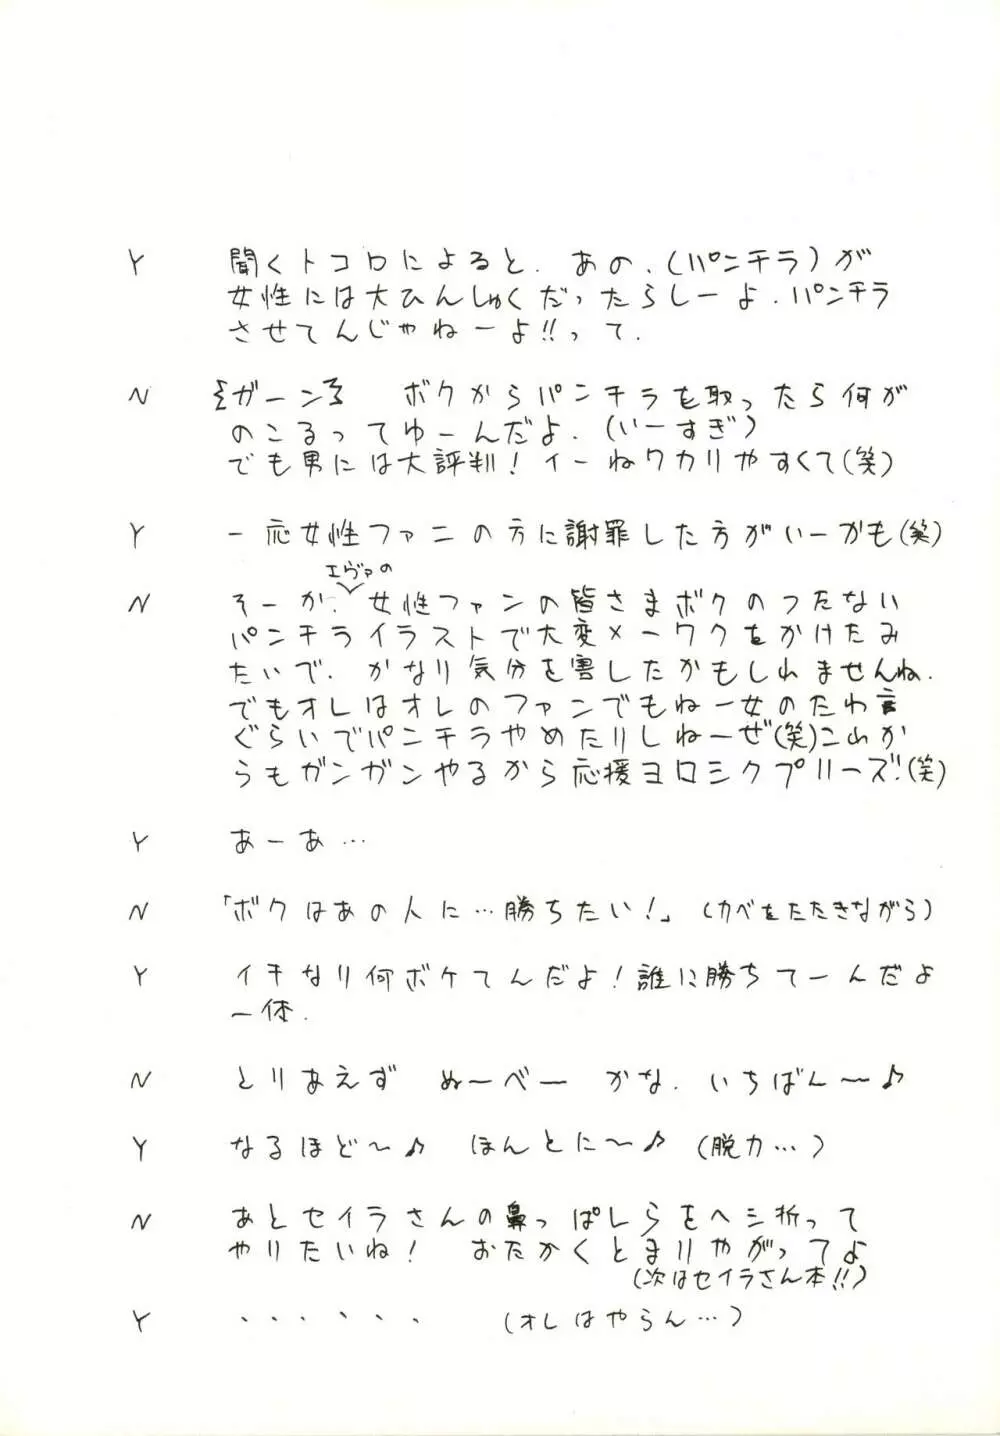 Y 聞くトコロによると．あの．(パンチラ)が
女性には大ひんしゅくだったらしーよ．パンチラ
させてんじゃねーよ!!って．
N {ガーン} ボクからパンチラを取ったら何が
のこるってゆーんだよ．(いーすぎ)
でも男には大評判！イーねワカリやすくて(笑)
Y 一応女性ファンの方に謝罪した方がいーかも(笑)
エヴァの
N そーか．女性ファンの皆さまボクのつたない
パンチライラストで大変メーワクをかけたみ
たいで．かなり気分を害したかもしれませんね．
でもオレはオレのファンでもねー女のたわ言
ぐらいでパンチラやめたりしねーぜ(笑)これか
らもガンガンやるから応援ヨロシクプリーズ!(笑)
Y あーあ…
N 「ボクはあの人に…勝ちたい！」(カベをたたきながら)
Y イキなり何ボケてんだよ！誰に勝ちてーんだよ
一体．
N とりあえず ぬーべー かな．いちばん〜♪
Y なるほど〜♪ ほんとに〜♪ (脱力…)
N あとセイラさんの鼻っぱしらをヘシ折って
やりたいね！ おたかくとまりやがってよ
(次はセイラさん本!!)
Y ・・・・・・ (オレはやらん…)